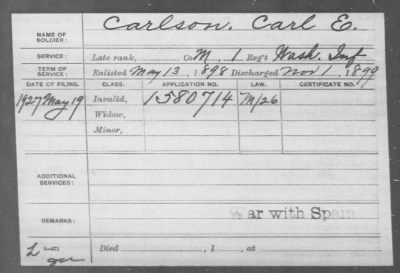 NAME OF SOLDIER: Carlson, Carl E.
SERVICE: Late rank, Co M, 1 Reg't Wash. Inf
TERM OF SERVICE: Enlisted May 13, 1898 Discharged Nov 1, 1899
DATE OF FILING. CLASS. APPLICATION NO. LAW. CERTIFICATE NO.
1927 May 19 Invalid, 1580714 M/26
Widow,
Minor,
ADDITIONAL SERVICES:
War with Spain
REMARKS:
Died , 1 , at